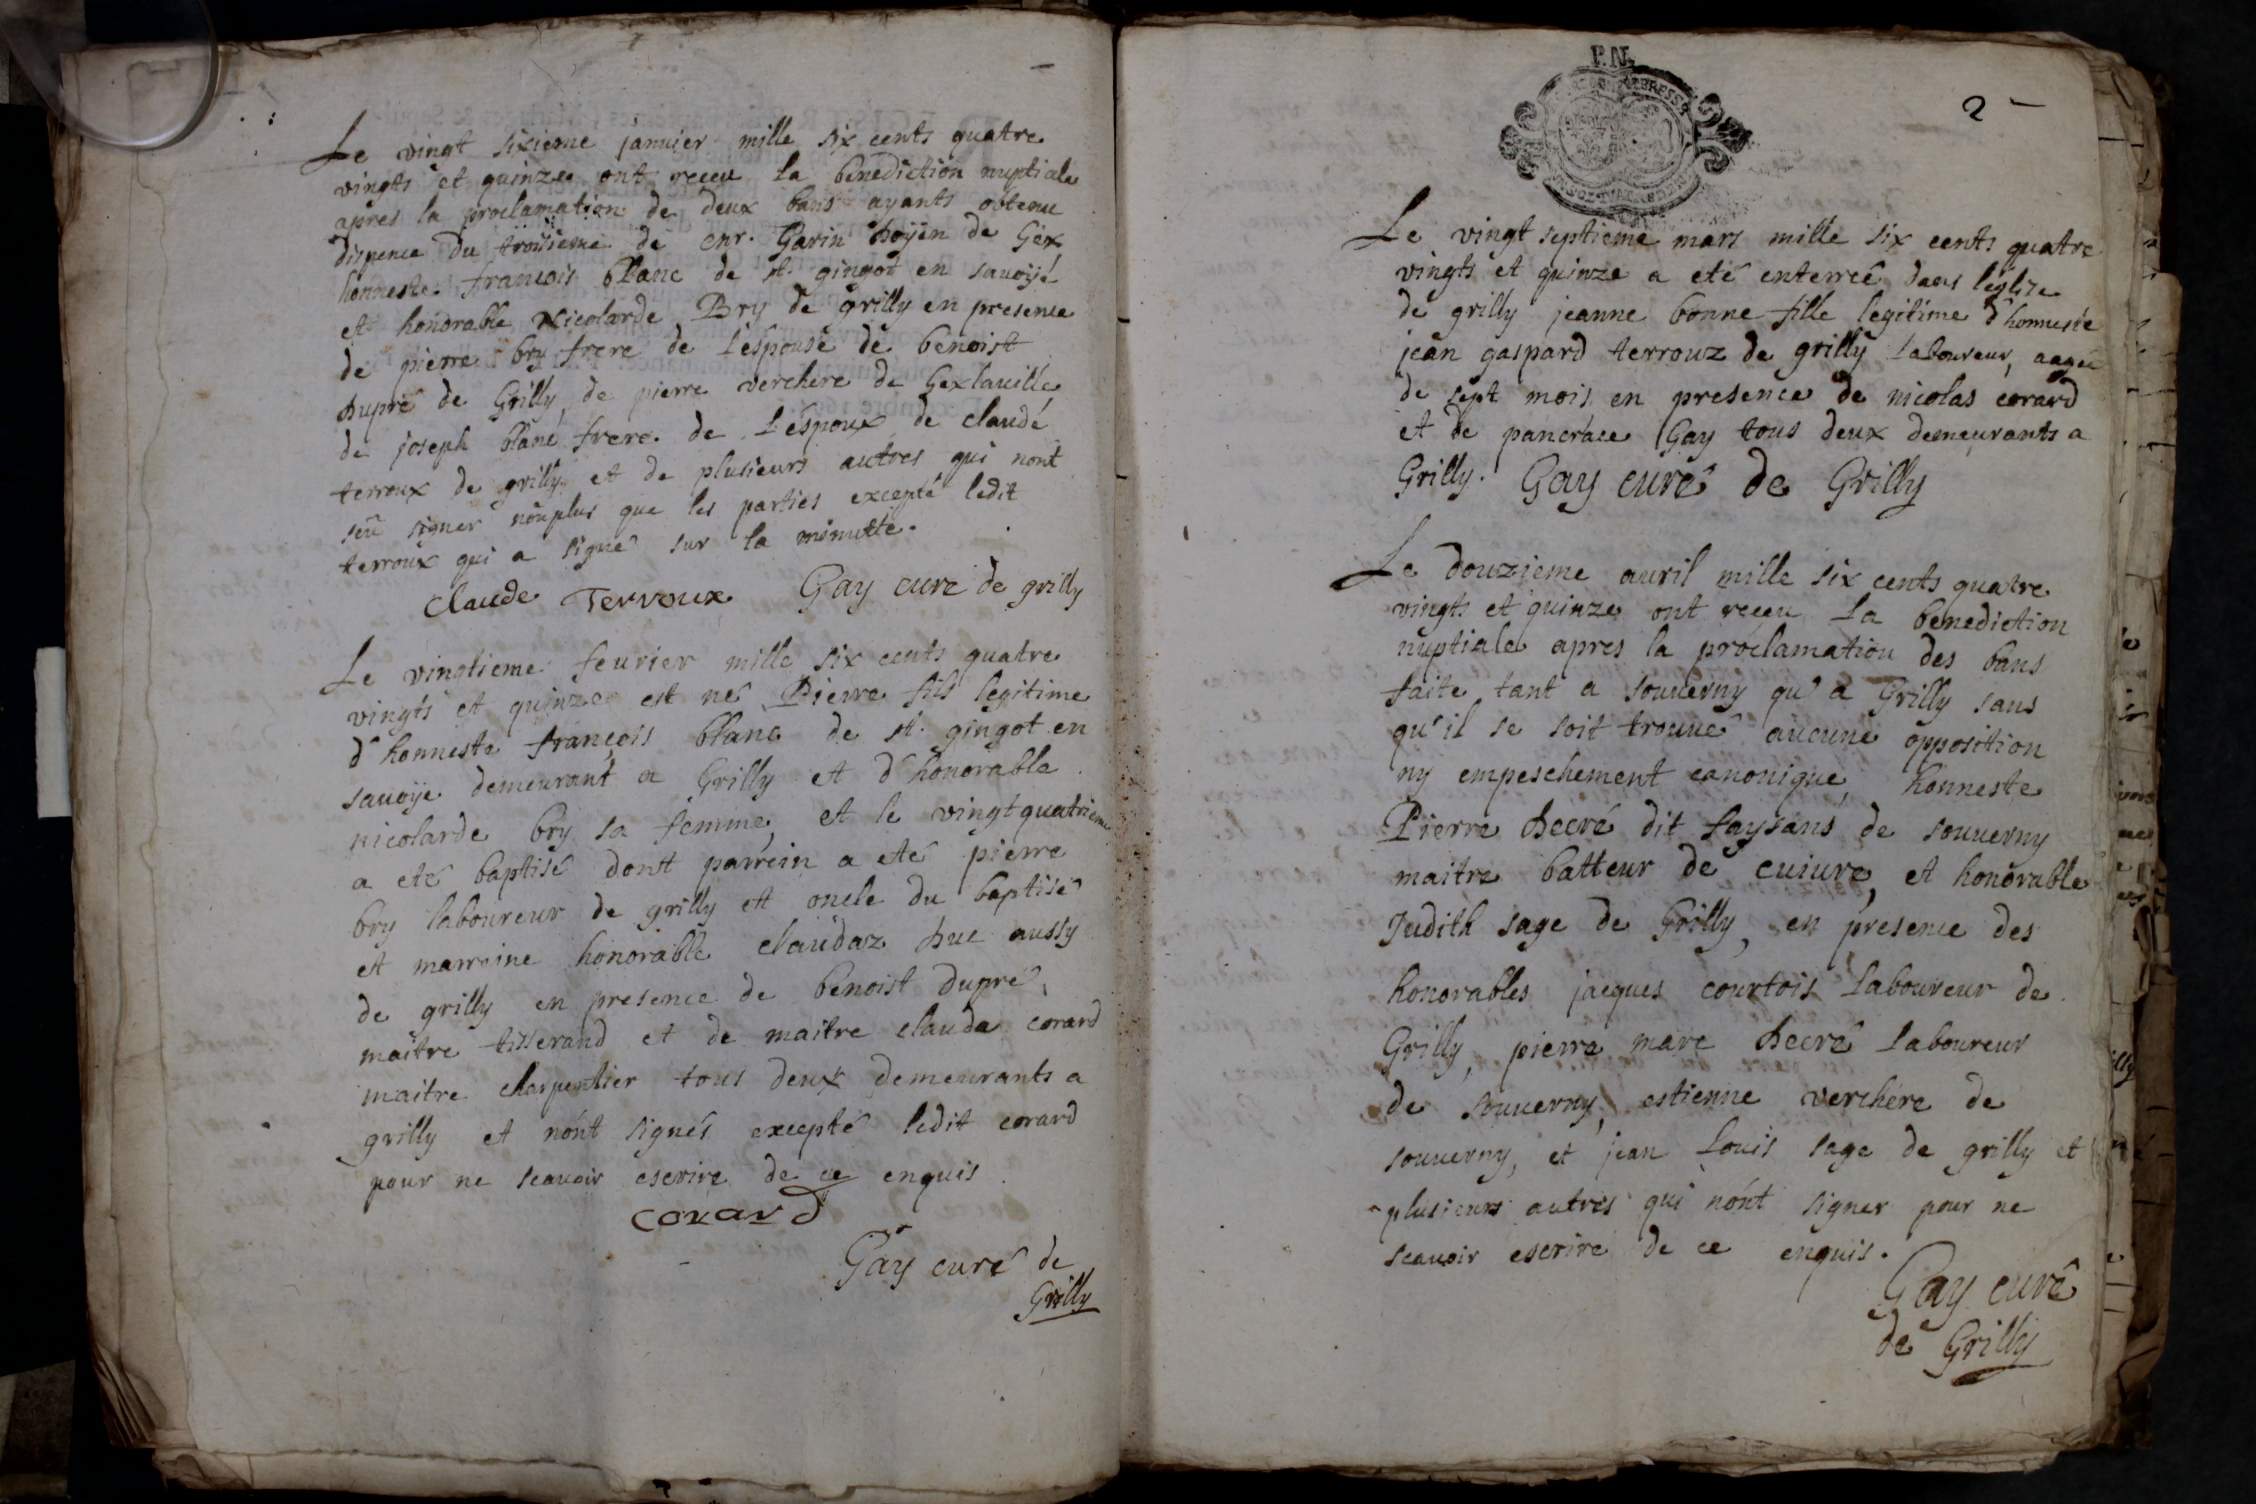 Le vingt sixieme janvier mille six cents quatre
vingts et quinze ont receu la benediction nuptiale
apres la proclamation de deux bans ayants obtenu
dispence du troisieme de Garin doyen de Gex
honneste francois blanc de st. gingot en savoye
et honorable Nicolarde Bry de grilly en presence
de pierre bry frere de l'espouse de benoist
dupré de Grilly, de pierre verchere de Gexlaville
de joseph blanc frere de l'espoux de claude
terroux de grilly et de plusieurs autres qui nont
seu signer nonplus que les parties excepté ledit
terroux qui a signé sur la minutte.
Claude Terroux Gay curé de grilly
Le vingtieme fevrier mille six cents quatre
vingts et quinze est né Pierre fils legitime
d'honneste françois blanc de st. gingot en
savoye demeurant a Grilly et d'honorable
nicolarde bry sa femme, et le vingtquatrieme
a eté baptisé dont parrein a eté pierre
bry laboureur de grilly et oncle du baptisé
et marreine honorable claudaz duc aussy
de grilly en presence de benoist dupré,
maitre tisserand et de maitre claude corard
maitre charpentier tous deux demeurants a
grilly et n'ont signés excepté ledit corard
pour ne scavoir escrire de ce enquis
corard
Gay curé de
Grilly
2
Le vingt septieme mars mille six cents quatre
vingts et quinze a eté enterreé dans l'eglize
de grilly jeanne bonne fille legitime d'honneste
jean gaspard terrouz de grilly laboureur, aageé
de sept mois en presence de nicolas corard
et de pancrace Gay tous deux demeurants a
Grilly. Gay curé de Grilly
Le douzieme auril mille six cents quatre
vingts et quinze ont receu la benediction
nuptiale apres la proclamation des bans
faite tant a souuerny qu'a Grilly sans
qu'il se soit trouué aucune opposition
ny empeschement canonique, honneste
Pierre decré dit faysans de souuerny
maitre batteur de cuiure, et honorable
Judith sage de Grilly, en presence des
honorables jacques courtois laboureur de
Grilly, pierre marc decré laboureur
de souuerny, estienne verchere de
souuerny, et jean Louis sage de grilly et
plusieurs autres qui n'ont signer pour ne
scauoir escrire de ce enquis.
Gay curé
de Grilly